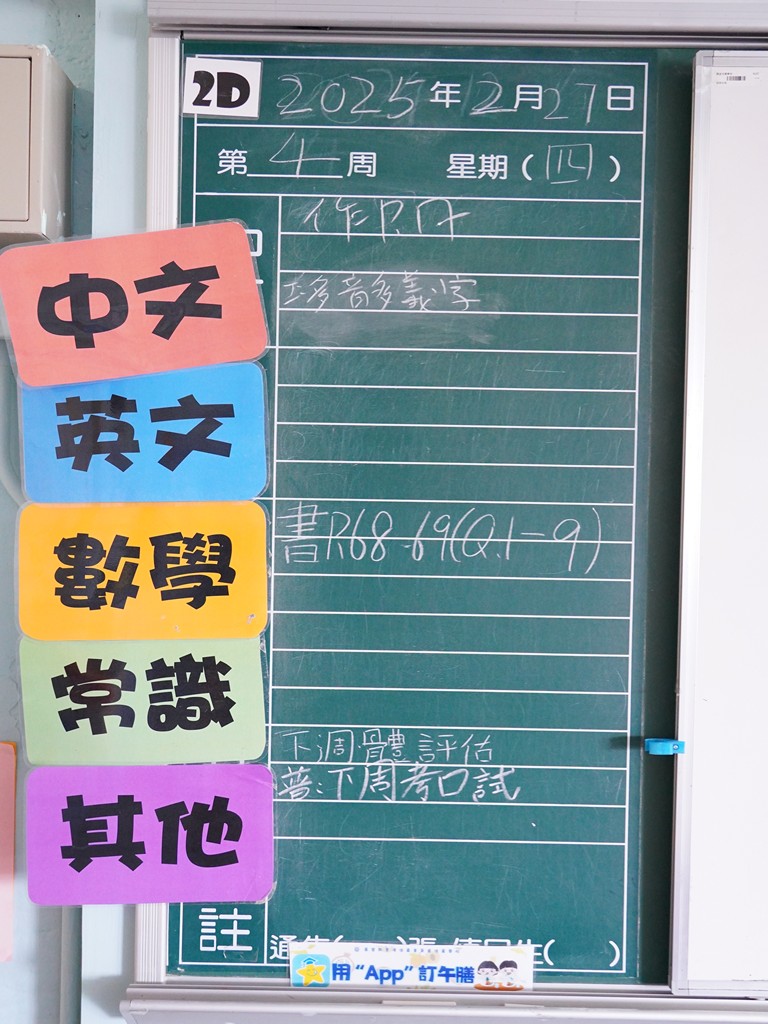 2D 2025年2月27日
第4周 星期(四)
中文
作P.
多音多義字
英文
數學
書P.68-69(Q.1-9)
常識
其他
下週體評估
普:下周考口試
註
用“App”訂午膳